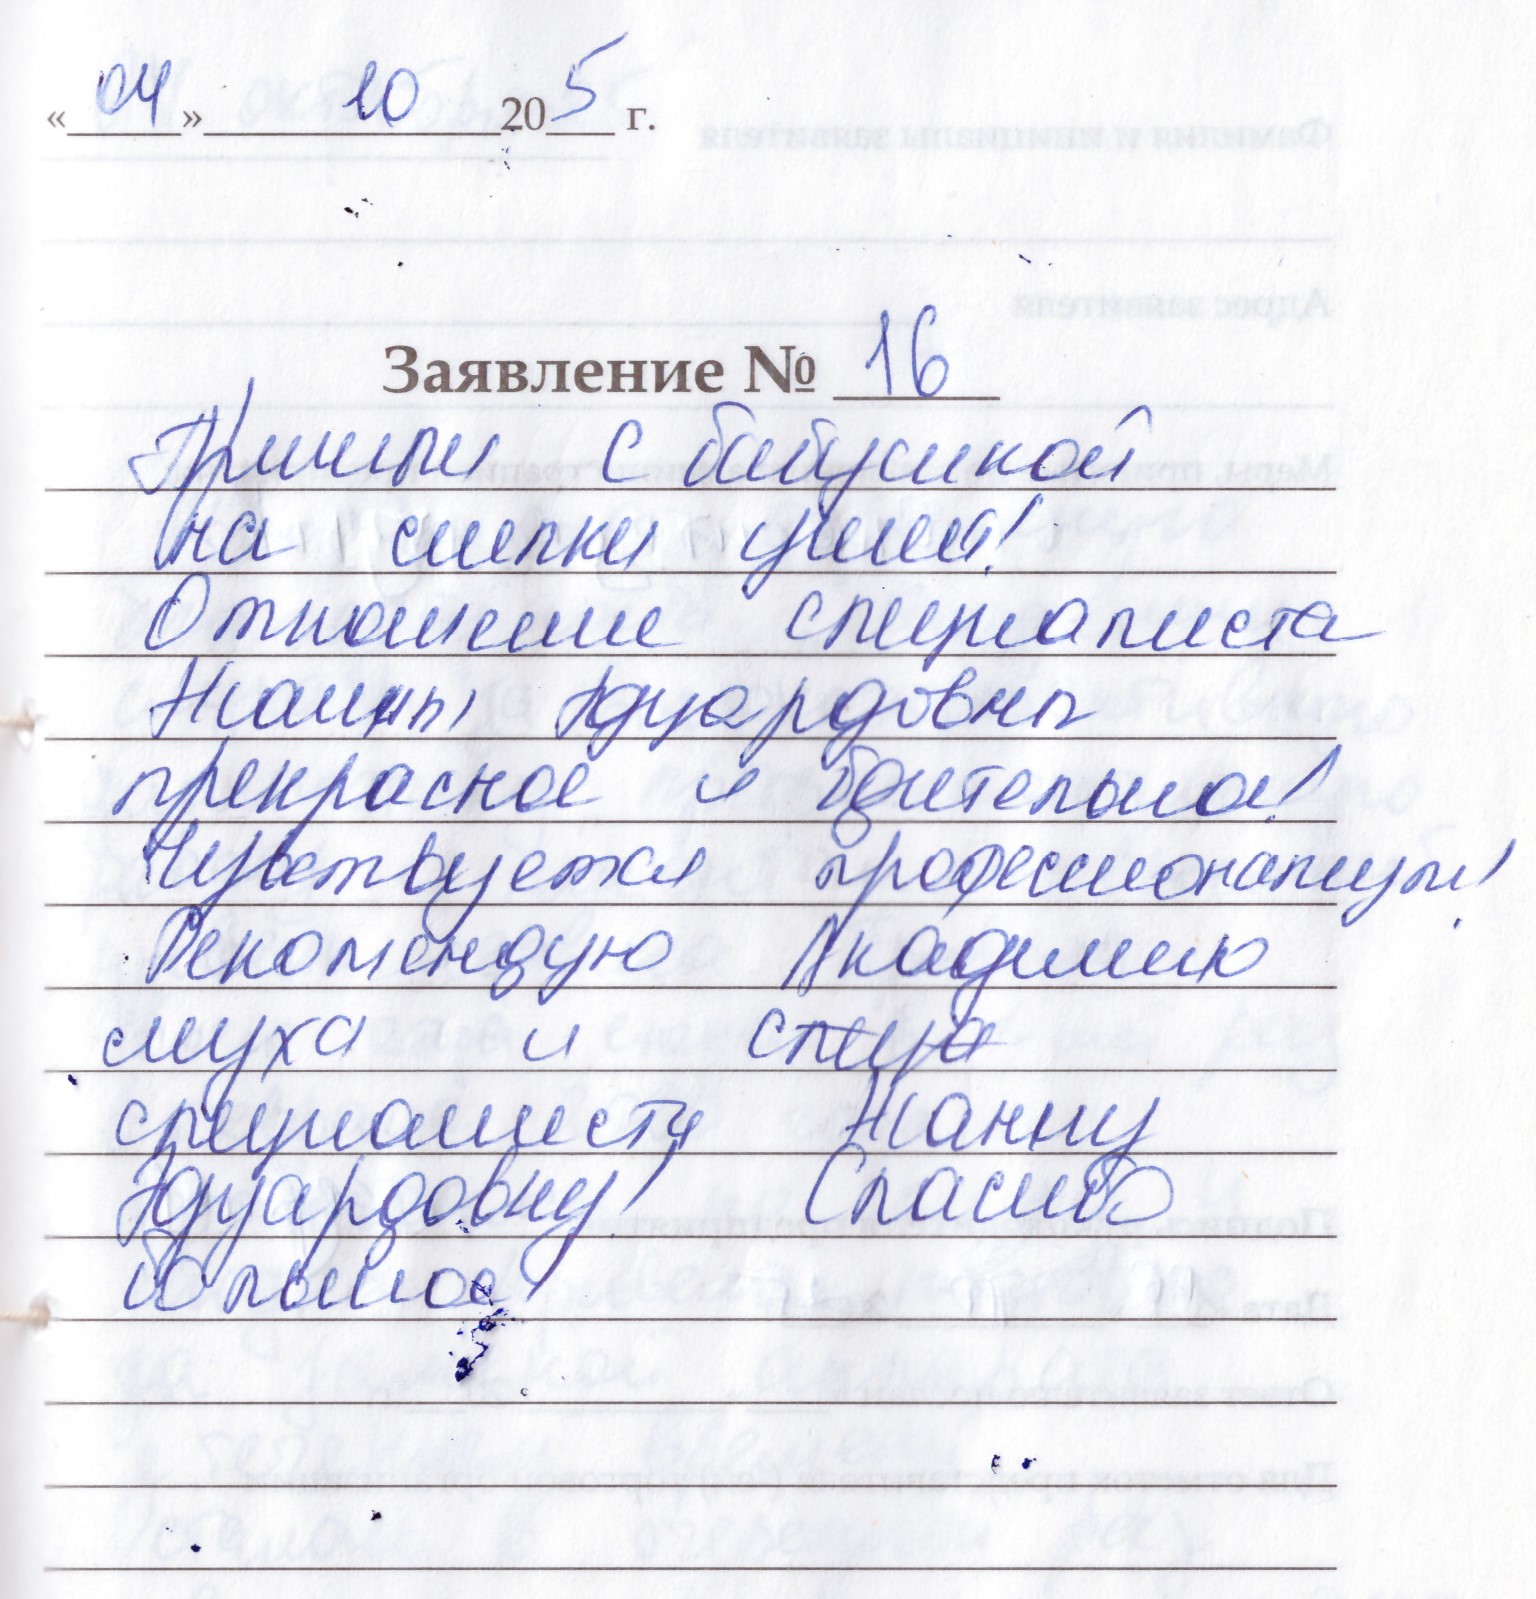 «04» 10 205 г.
Заявление № 16
Пришли с бабушкой
на слепки ушей!
Отношение специалиста
Жанны Эдуардовны
прекрасное и бдительное!
Чувствуется профессионализм!
Рекомендую Академию
слуха и специа
специалисту Жанну
Эдуардовну! Спасибо
большое!